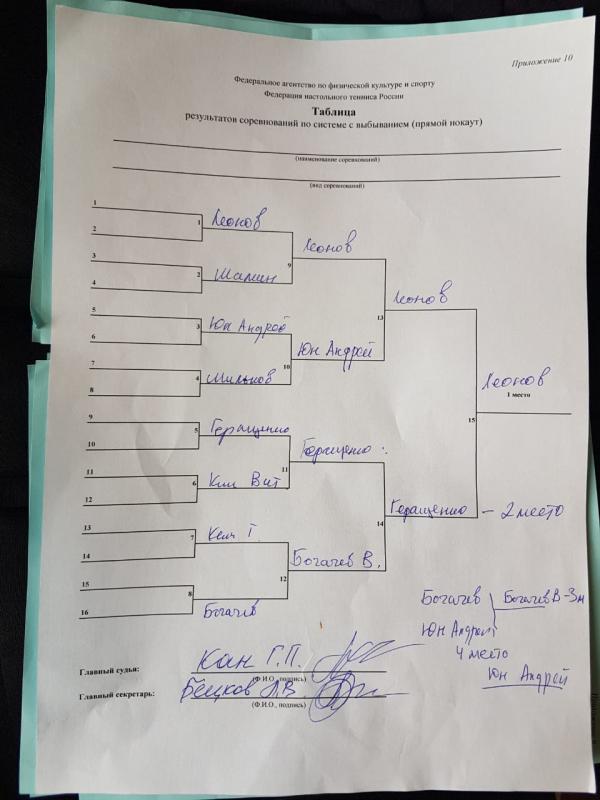 Приложение 10
Федеральное агентство по физической культуре и спорту
Федерация настольного тенниса России
Таблица
результатов соревнований по системе с выбыванием (прямой нокаут)
(наименование соревнований)
(вид соревнований)
1
2
1 Леонов
3
4
2 Шамин
9 Леонов
5
6
3 Юн Андрей
7
8
4 Мильков
10 Юн Андрей
13 Леонов
9
10
5 Геращенко
11
12
6 Ким Вит
11 Геращенко
13
14
7 Ким Г.
15
16
8 Богачев
12 Богачев В.
14 Геращенко – 2 место
15 Леонов
1 место
Богачев
Богачев В – 3 м
Юн Андрей
4 место
Юн Андрей
Главный судья: Кан Г.П.
(Ф.И.О., подпись)
Главный секретарь:
(Ф.И.О., подпись)